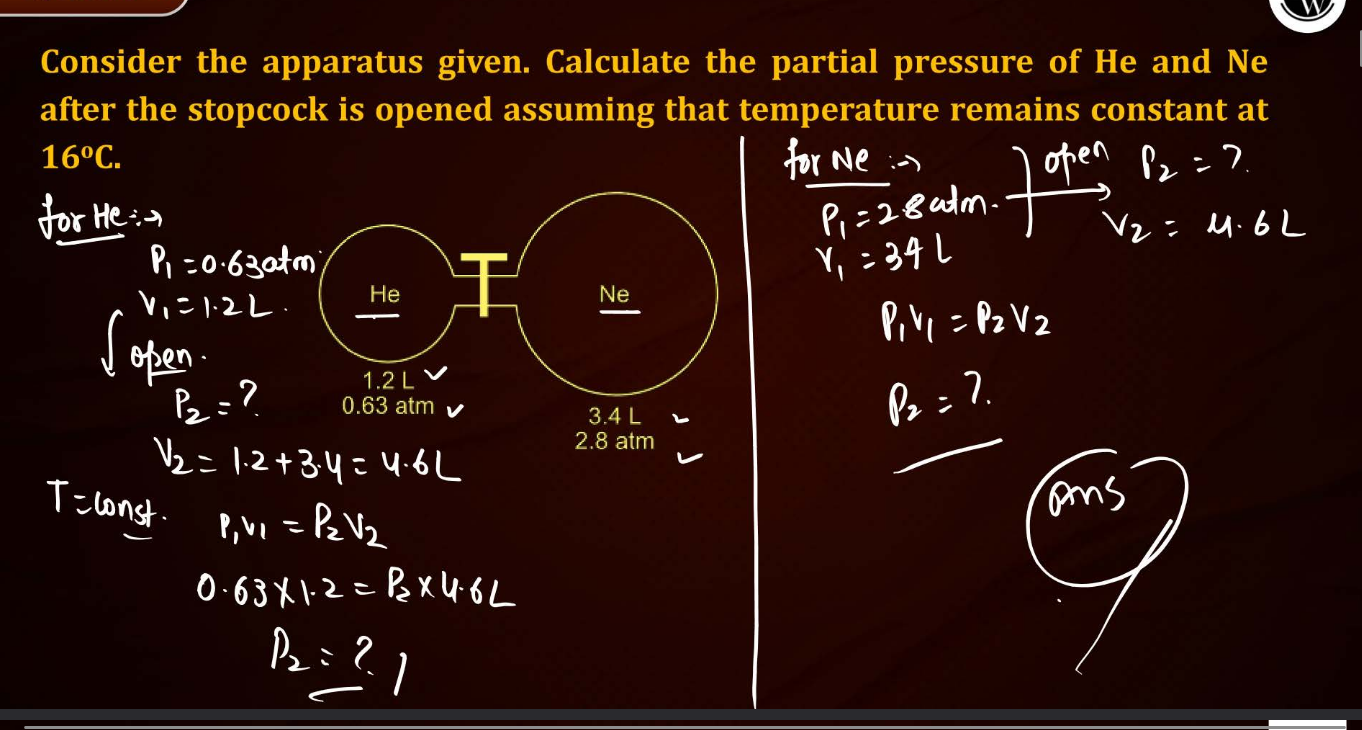 W
Consider the apparatus given. Calculate the partial pressure of He and Ne
after the stopcock is opened assuming that temperature remains constant at
16°C.
for He :→
P₁ = 0.63atm
V₁ = 1.2 L.
open.
P₂ = ?
V₂ = 1.2+3.4 = 4.6L
T = const.
P₁V₁ = P₂V₂
0.63 X 1.2 = P₂ X 4.6L
P₂ = ?
He
Ne
1.2 L
0.63 atm
3.4 L
2.8 atm
for Ne :→
P₁ = 2.8 atm.
V₁ = 34 L
open P₂ = ?.
V₂ = 4.6L
P₁V₁ = P₂V₂
P₂ = ?.
ans